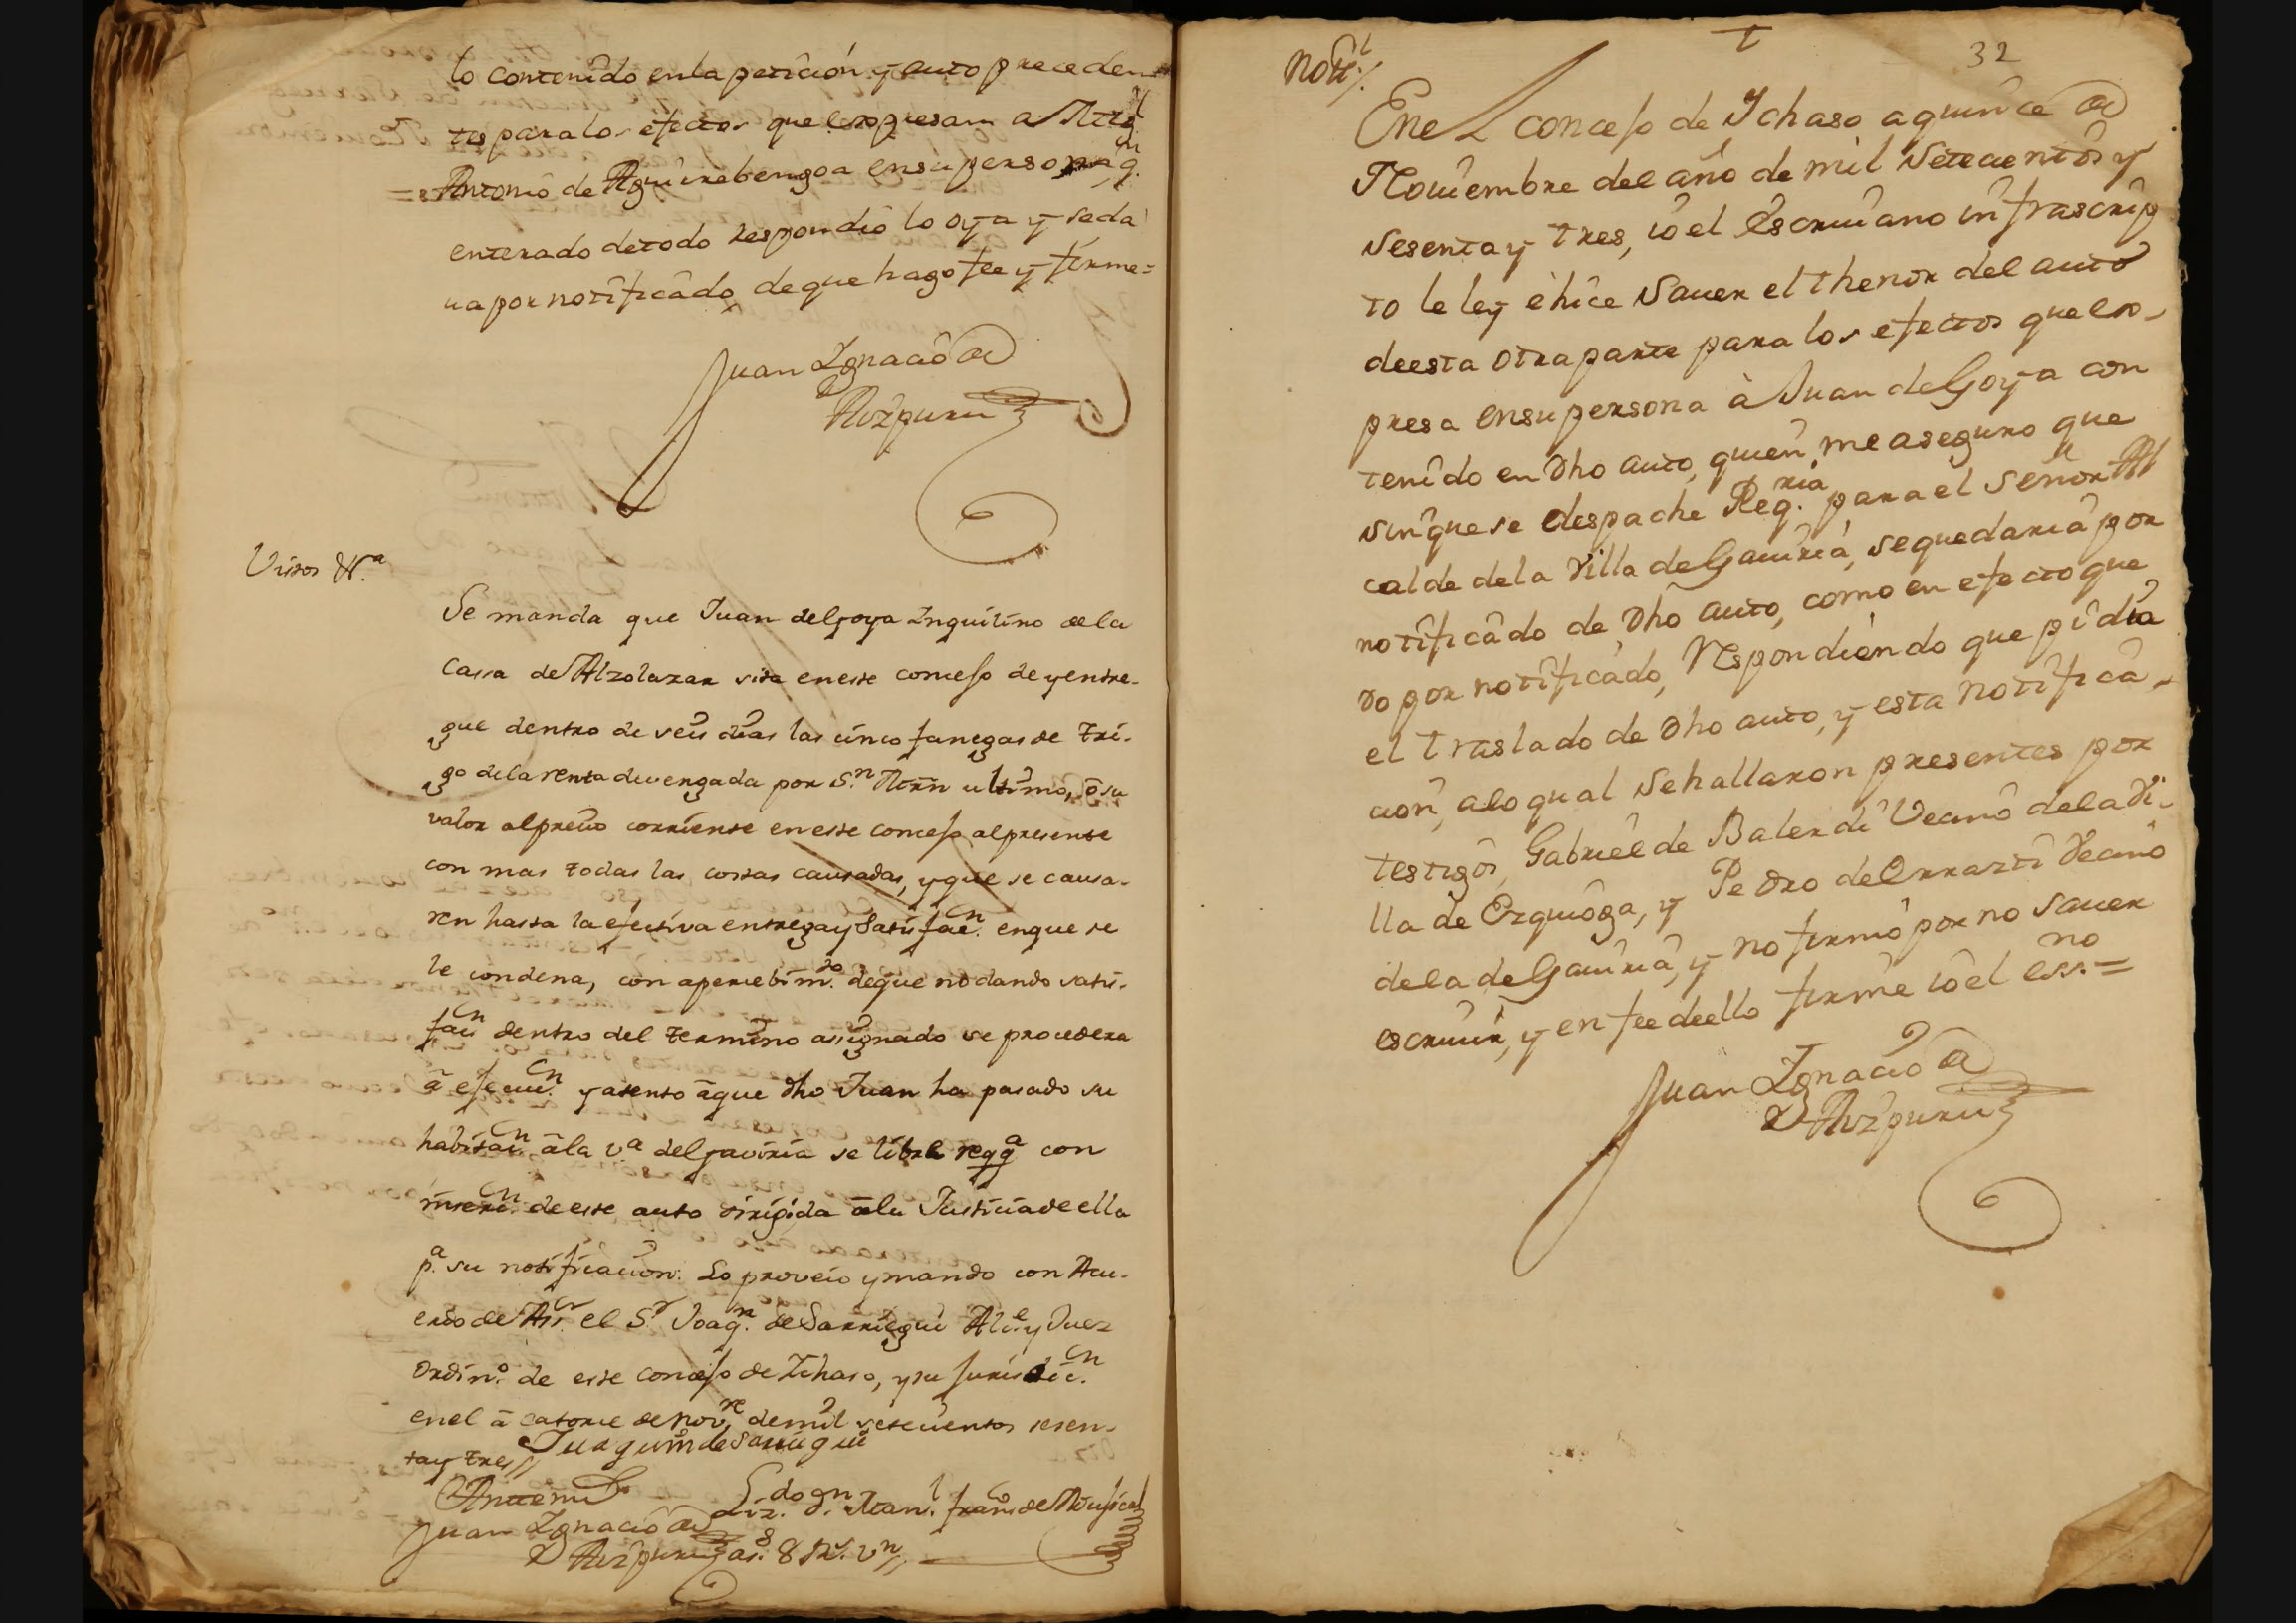 lo contenido enla peticion y auto preceden
tes para los efectos que expresam a Mrñ
= Antonio de Aguirrebengoa ensu persona, q.n
enterado detodo Respondio lo oya y seda
ua por notificado, deque hago fee y firme =
Juan Ignacio de
Aizpuru
Vistos &.a
Se manda que Juan de Goya Inquilino dela
Cassa de Alzolarar sita eneste concejo de y entre-
gue dentro de seis dias las cinco fanegas de tri-
go dela renta devengada por S.n Mrñ ultimo, ò su
valor alprecio corriente eneste concejo alpresente
con mas todas las costas causadas, y que se causa-
ren hasta la efectiva entrega y Satisfac.cn enque se
le condena, con apercebim.to deque no dando satis-
faccn dentro del termino assignado se procedera
à ejecuc.cn y atento àque dho Juan ha pasado su
habitac.cn àla v.a de Gaviria se libre reqq.a con
inserc.cn de este auto dirigida àla Justicia de ella
p.a su notificacion: Lo proveio y mando con Acu-
erdo de Ass.cr el S.r Joaq.n de Sarriegui Alc.e y Juez
Ordin.o de este concejo de Ichaso, y su Jurisdic.cn
enel à catorce de Nov.re demil setecientos sesen-
ta y tres//
Juaquin de Sarriegui
Antemi
Juan Ignacio de
Aizpuru
Liz.do d.gn Man.l fran.co de Mujica
as.o 8 Rs. vn//
Noti./.
32
Enel concejo de Ychaso a quince de
Nouiembre del año de mil Setecientos y
Sesenta y tres, io el Escriuano infrascrip
to le ley è hice Sauer el thenor del auto
deesta otra parte para los efectos que ex-
presa ensu persona à Juan de Goya con
tenido en dho auto, quien me aseguro que
sinque se despache Req.ria para el Señor Al
calde dela Villa de Gauiria, sequedaria por
notificado de dho auto, como en efecto que
do por notificado, Respondiendo que pidia
el traslado de dho auto, y esta notifica-
cion, alo qual Sehallaron presentes por
testigos, Gabriel de Balerdi Vecino dela Vi-
lla de Ezquioga, y Pedro de Errazti Vecino
dela de Gauiria, y no firmo por no Sauer
escriuir, y en fee deello firme io el ess.no =
Juan Ignacio de
Aizpuru